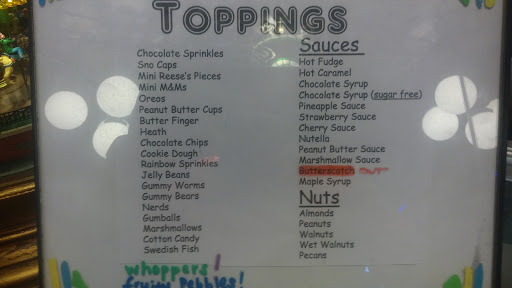 TOPPINGS
Chocolate Sprinkles
Sno Caps
Mini Reese's Pieces
Mini M&Ms
Oreos
Peanut Butter Cups
Butter Finger
Heath
Chocolate Chips
Cookie Dough
Rainbow Sprinkles
Jelly Beans
Gummy Worms
Gummy Bears
Nerds
Gumballs
Marshmallows
Cotton Candy
Swedish Fish
whoppers!
fruity pebbles!
Sauces
Hot Fudge
Hot Caramel
Chocolate Syrup
Chocolate Syrup (sugar free)
Pineapple Sauce
Strawberry Sauce
Cherry Sauce
Nutella
Peanut Butter Sauce
Marshmallow Sauce
Butterscotch
Maple Syrup
Nuts
Almonds
Peanuts
Walnuts
Wet Walnuts
Pecans